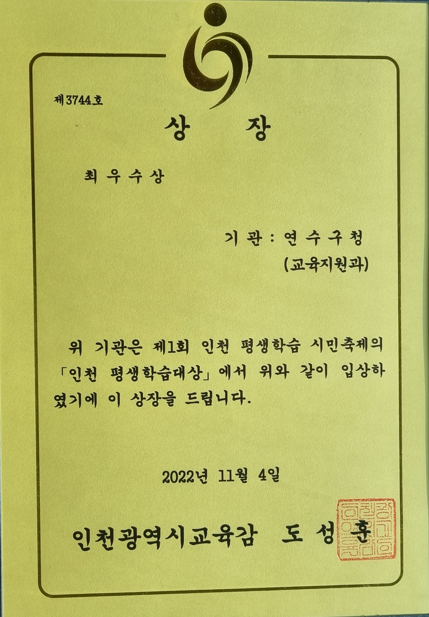 제3744호
상 장
최우수상
기관 : 연수구청
(교육지원과)
위 기관은 제1회 인천 평생학습 시민축제의
「인천 평생학습대상」에서 위와 같이 입상하
였기에 이 상장을 드립니다.
2022년 11월 4일
인천광역시교육감 도성훈